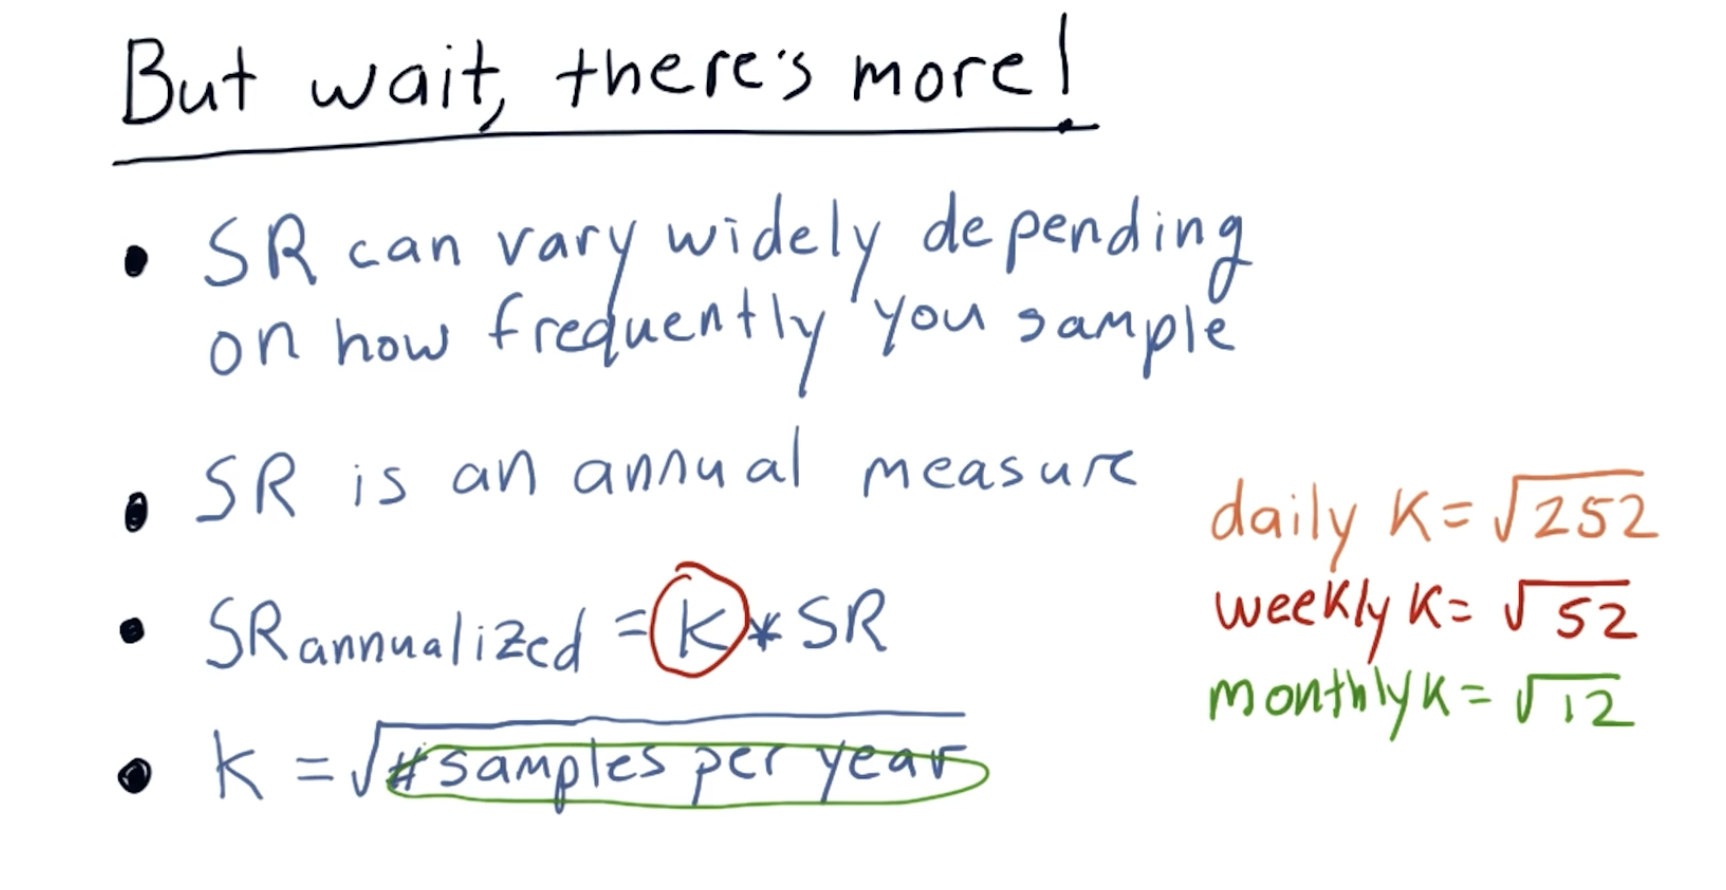 But wait, there's more!
• SR can vary widely depending
on how frequently you sample
• SR is an annual measure
• SRannualized = K * SR
• K = √# samples per year
daily K = √252
weekly K = √52
monthly K = √12